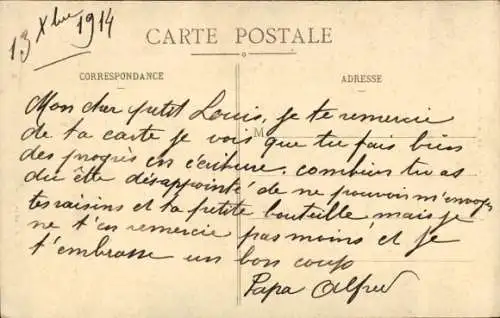 13 Xbre 1914
CARTE POSTALE
CORRESPONDANCE
ADRESSE
M
Mon cher petit Louis, je te remercie
de ta carte je vois que tu fais bien
des progrès en écriture. combien tu as
du être désappointé de ne pouvoir m'envoyer
tes raisins et ta petite bouteille, mais je
ne t'en remercie pas moins et je
t'embrasse un bon coup
Papa Alfred